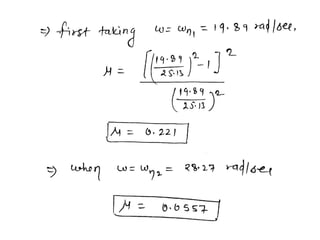 ⇒ first taking ω = ωn1 = 19.89 rad/sec,
μ = [(19.89/25.13)² - 1]² / (19.89/25.13)²
μ = 0.221
⇒ when ω = ωn2 = 28.27 rad/sec
μ = 0.0557